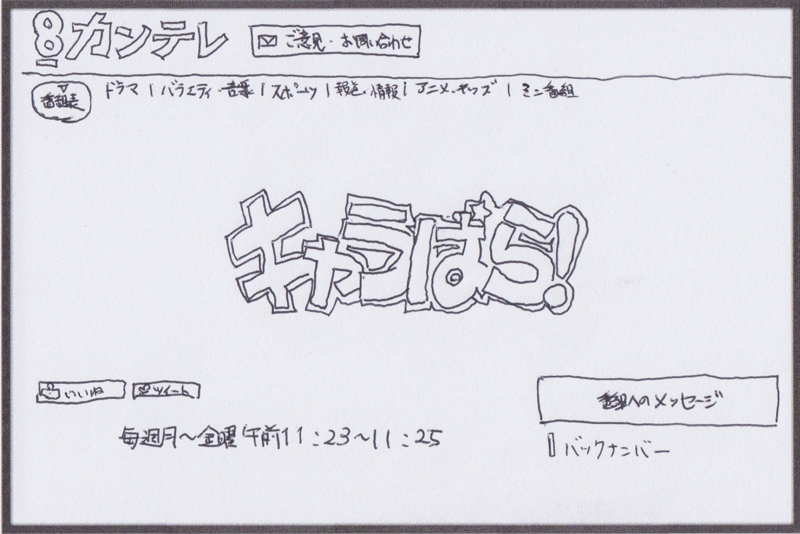 8カンテレ
ご意見・お問い合わせ
番組表
ドラマ | バラエティ・音楽 | スポーツ | 報道・情報 | アニメ・キッズ | ミニ番組
キャラぱら!
いいね
ツイート
番組へのメッセージ
毎週月〜金曜 午前11:23〜11:25
バックナンバー